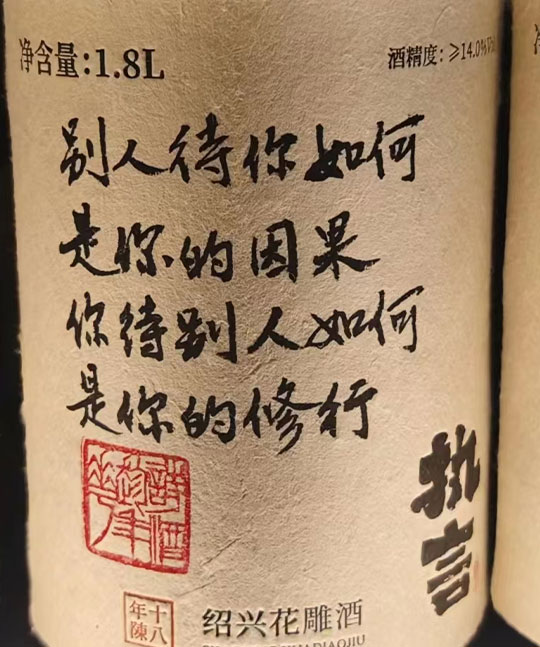 净含量:1.8L
酒精度:≥14.0%Vol
别人待你如何
是你的因果
你待别人如何
是你的修行
执言
十八年陳
绍兴花雕酒